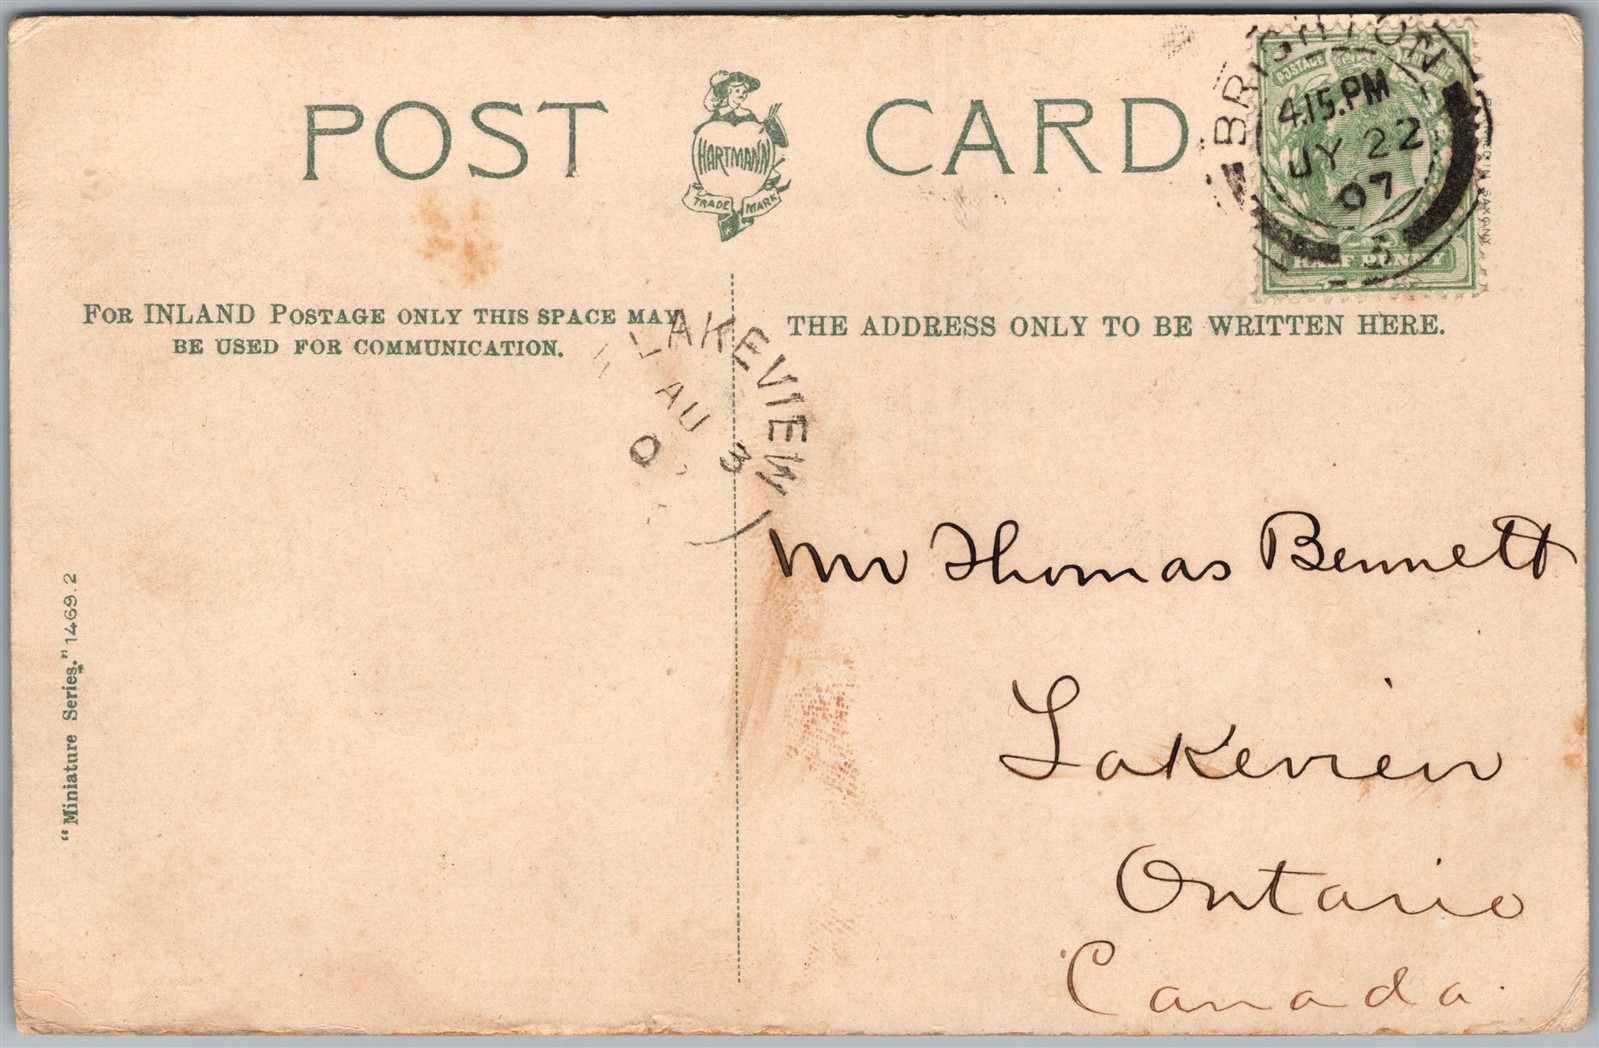 POST CARD
HARTMANN
TRADE MARK
BRIGHTON
4.15.PM
JY 22
07
3
POSTAGE
HALF PENNY
FOR INLAND POSTAGE ONLY THIS SPACE MAY
BE USED FOR COMMUNICATION.
THE ADDRESS ONLY TO BE WRITTEN HERE.
LAKEVIEW
AU 3
0
Mr Thomas Bennett
Lakeview
Ontario
Canada.
"Miniature Series." 1469.2